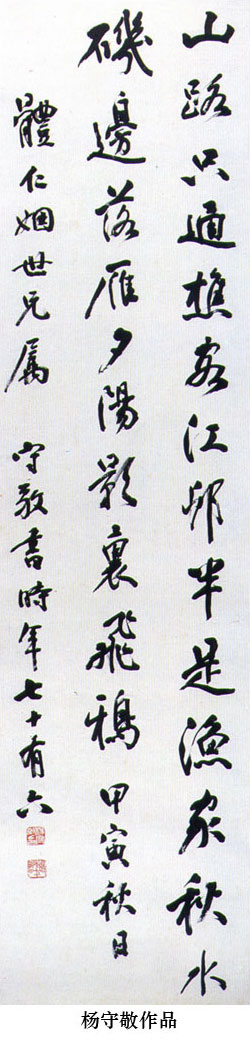 山路只通樵客江邨半是漁家秋水
磯邊落雁夕陽影裏飛鴉 甲寅秋日
體仁姻世兄屬 守敬書時年七十有六
杨守敬作品